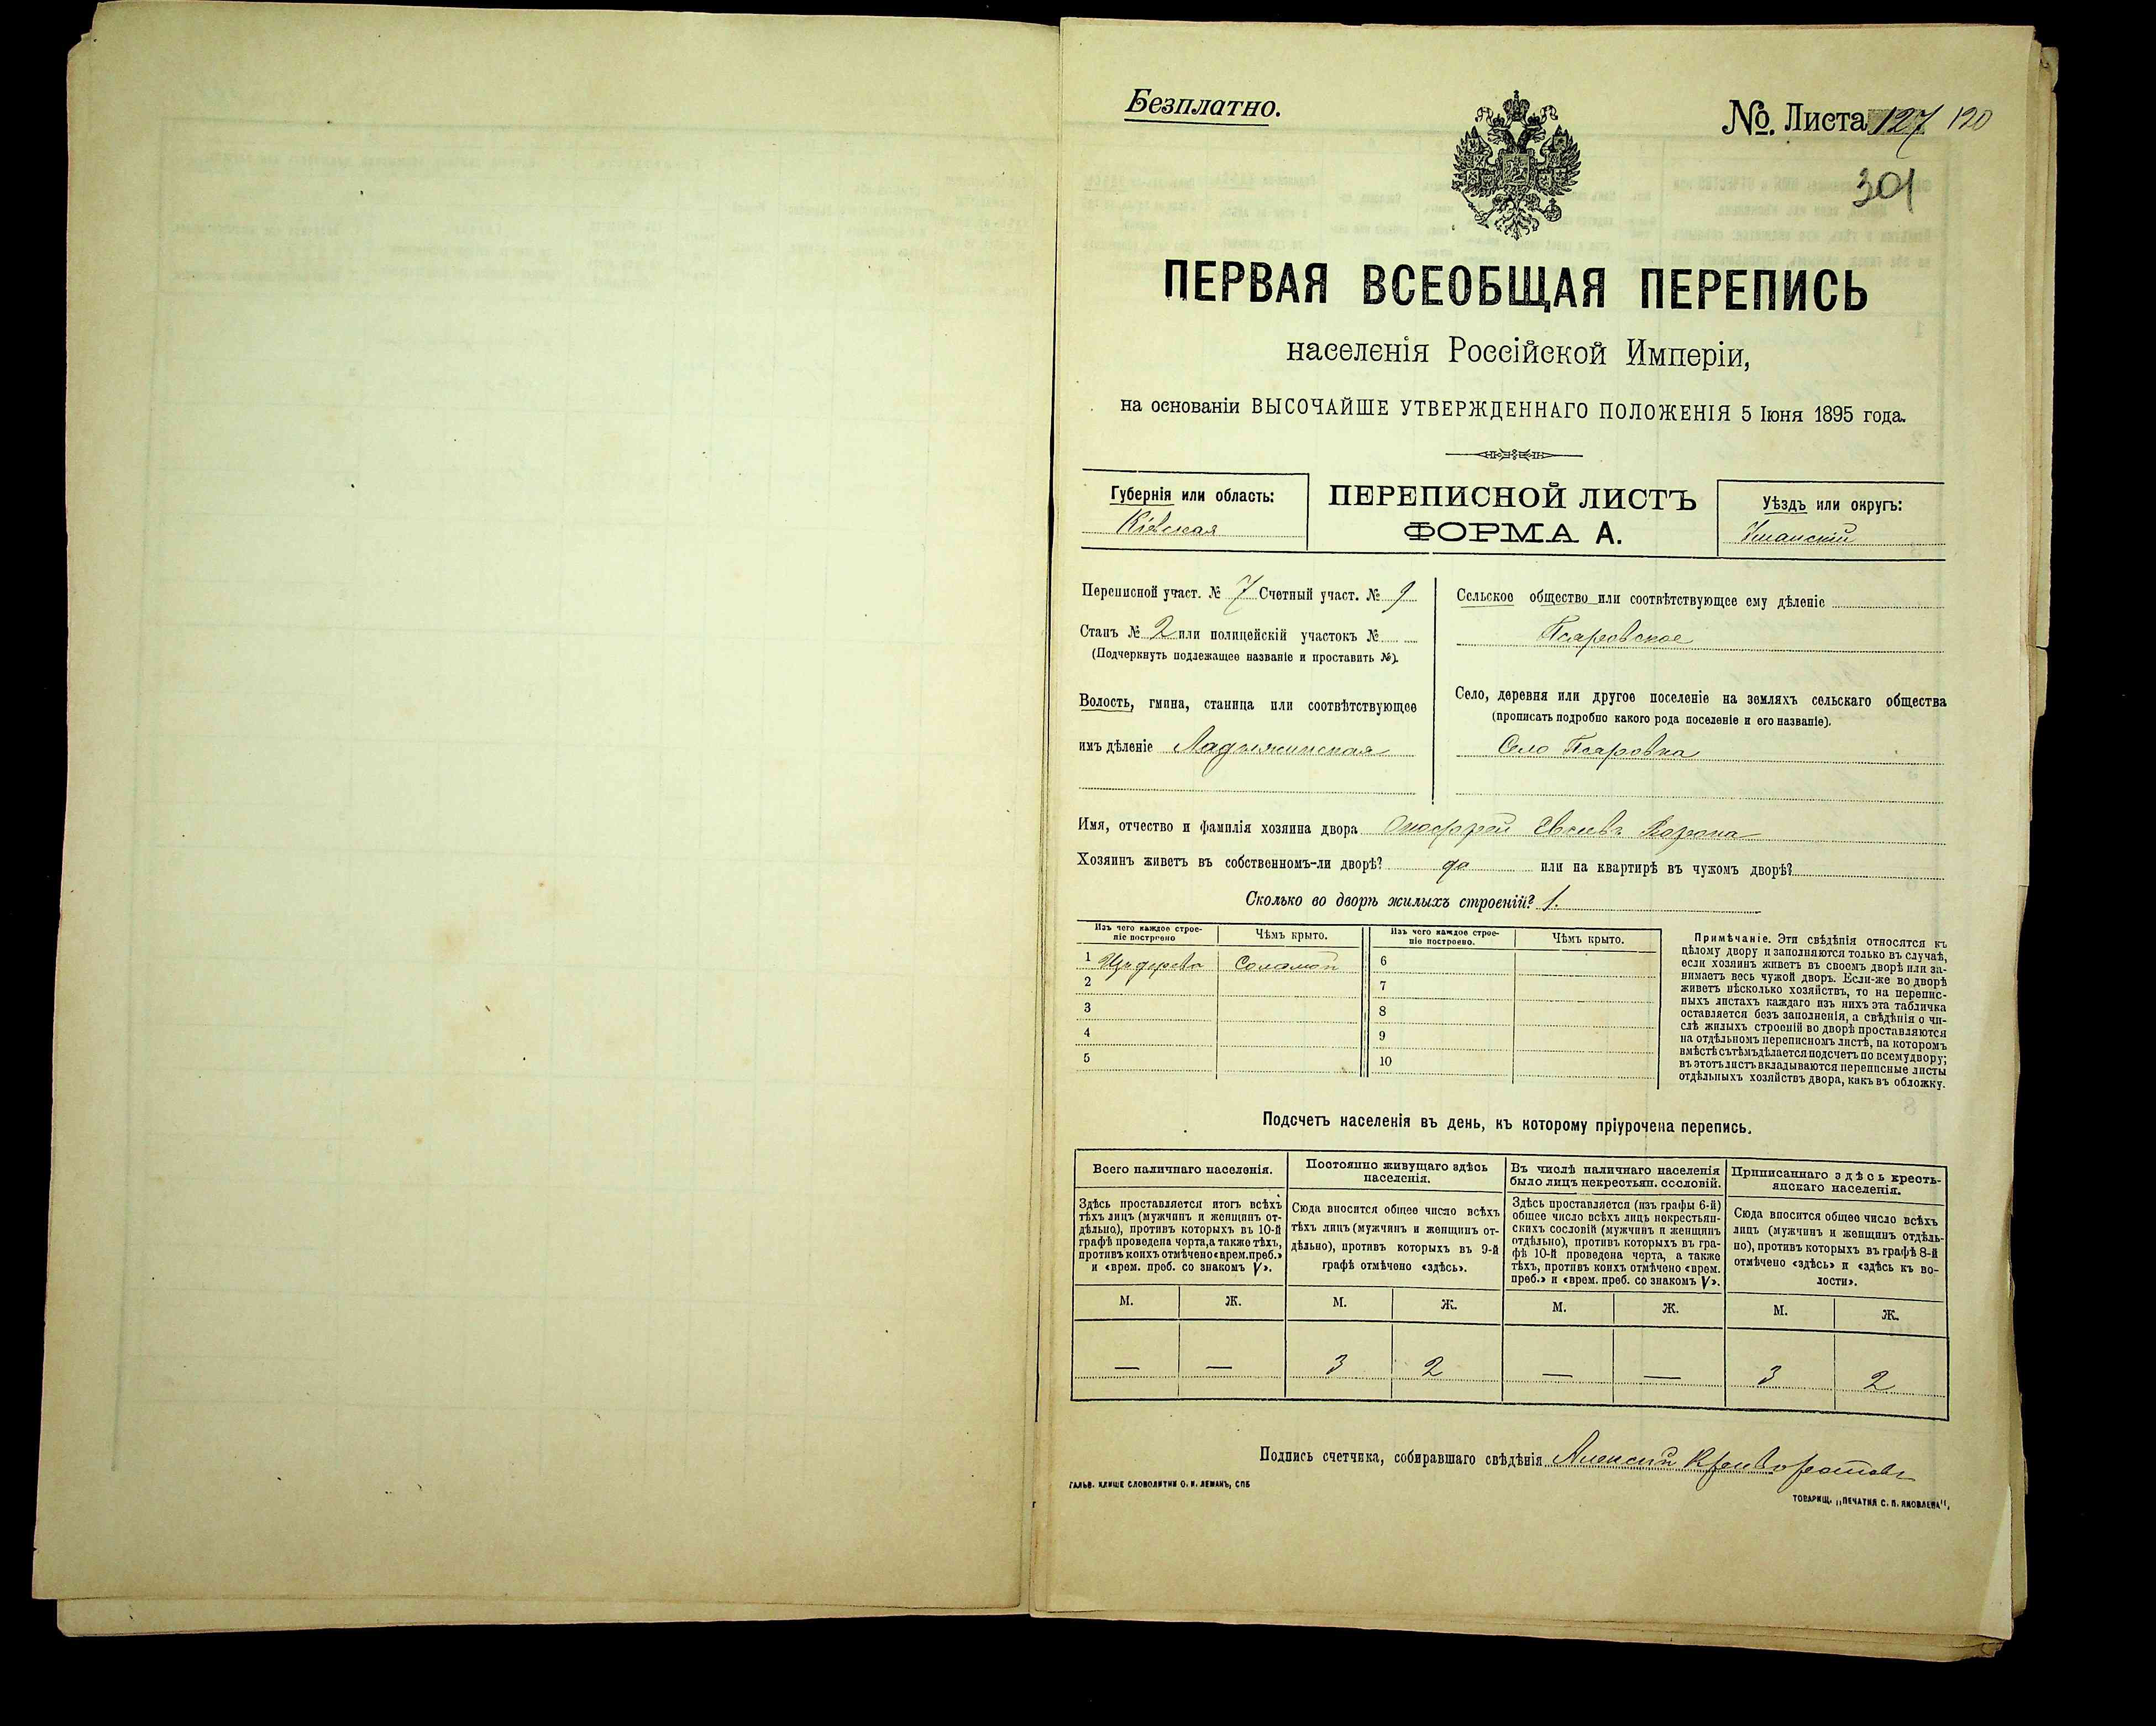 Безплатно.
№ Листа 127 120
301
ПЕРВАЯ ВСЕОБЩАЯ ПЕРЕПИСЬ
населенія Россійской Имперіи,
на основаніи ВЫСОЧАЙШЕ УТВЕРЖДЕННАГО ПОЛОЖЕНІЯ 5 Іюня 1895 года.
Губернія или область:
Кіевская
ПЕРЕПИСНОЙ ЛИСТЪ
ФОРМА А.
Уѣздъ или округъ:
Уманскій
Переписной участ. № 7 Счетный участ. № 9
Станъ № 2 или полицейскій участокъ №
(Подчеркнуть подлежащее названіе и проставить №).
Волость, гмина, станица или соотвѣтствующее
имъ дѣленіе Ладыжинская
Сельское общество или соотвѣтствующее ему дѣленіе
Псаровское
Село, деревня или другое поселеніе на земляхъ сельскаго общества
(прописать подробно какого рода поселеніе и его названіе).
Село Псаровка
Имя, отчество и фамилія хозяина двора Онофрей Евсіевъ Ворона
Хозяинъ живетъ въ собственномъ-ли дворѣ? да или на квартирѣ въ чужомъ дворѣ?
Сколько во дворѣ жилыхъ строеній? 1.
Изъ чего каждое строе-
ніе построено
Чѣмъ крыто.
Изъ чего каждое строе-
ніе построено.
Чѣмъ крыто.
1 Изъ дерева Соломой
2
3
4
5
6
7
8
9
10
Примѣчаніе. Эти свѣдѣнія относятся къ
цѣлому двору и заполняются только въ случаѣ,
если хозяинъ живетъ въ своемъ дворѣ или за-
нимаетъ весь чужой дворъ. Если-же во дворѣ
живетъ нѣсколько хозяйствъ, то на перепис-
ныхъ листахъ каждаго изъ нихъ эта табличка
оставляется безъ заполненія, а свѣдѣнія о чи-
слѣ жилыхъ строеній во дворѣ проставляются
на отдѣльномъ переписномъ листѣ, на которомъ
вмѣстѣ съ тѣмъ дѣлается подсчетъ по всему двору;
въ этотъ листъ вкладываются переписные листы
отдѣльныхъ хозяйствъ двора, какъ въ обложку.
Подсчетъ населенія въ день, къ которому пріурочена перепись.
Всего наличнаго населенія.
Здѣсь проставляется итогъ всѣхъ
тѣхъ лицъ (мужчинъ и женщинъ от-
дѣльно), противъ которыхъ въ 10-й
графѣ проведена черта, а также тѣхъ,
противъ коихъ отмѣчено «врем. преб.»
и «врем. преб. со знакомъ V».
М. Ж.
— —
Постоянно живущаго здѣсь
населенія.
Сюда вносится общее число всѣхъ
тѣхъ лицъ (мужчинъ и женщинъ от-
дѣльно), противъ которыхъ въ 9-й
графѣ отмѣчено «здѣсь».
М. Ж.
3 2
Въ числѣ наличнаго населенія
было лицъ некрестьян. сословій.
Здѣсь проставляется (изъ графы 6-й)
общее число всѣхъ лицъ некрестьян-
скихъ сословій (мужчинъ и женщинъ
отдѣльно), противъ которыхъ въ гра-
фѣ 10-й проведена черта, а также
тѣхъ, противъ коихъ отмѣчено «врем.
преб.» и «врем. преб. со знакомъ V».
М. Ж.
— —
Приписаннаго здѣсь кресть-
янскаго населенія.
Сюда вносится общее число всѣхъ
лицъ (мужчинъ и женщинъ отдѣль-
но), противъ которыхъ въ графѣ 8-й
отмѣчено «здѣсь» и «здѣсь къ во-
лости».
М. Ж.
3 2
Подпись счетчика, собиравшаго свѣдѣнія Алексій Криворотовъ
ГАЛЬВ. КЛИШЕ СЛОВОЛИТНИ О. И. ЛЕМАНЪ, СПБ
ТОВАРИЩ. „ПЕЧАТНЯ С. П. ЯКОВЛЕВА“.